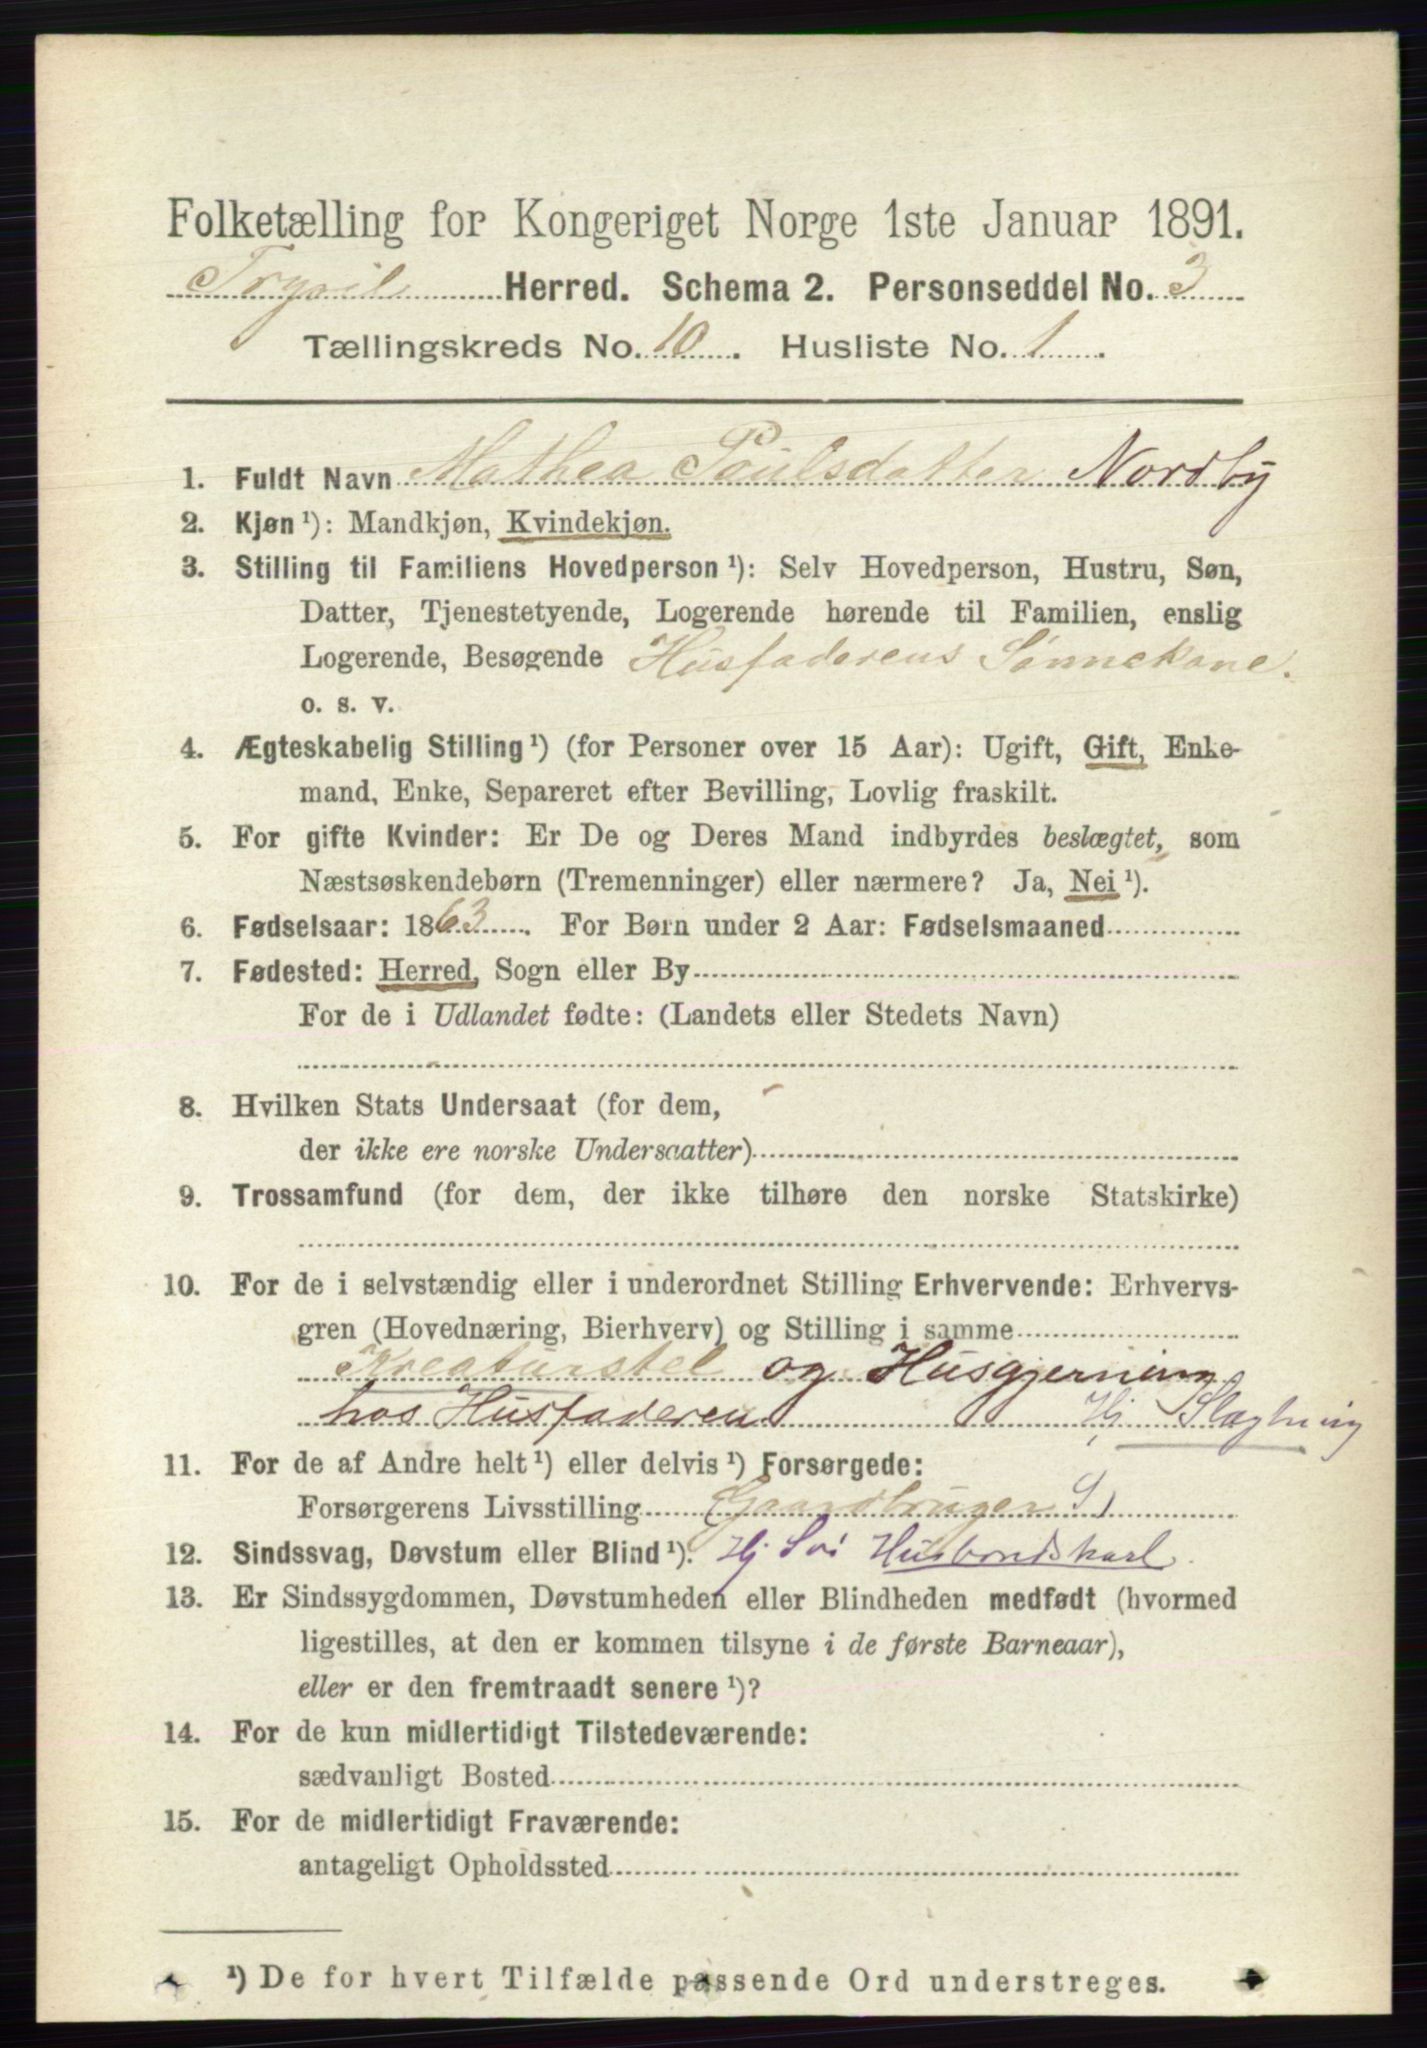 Folketælling for Kongeriget Norge 1ste Januar 1891.
Trysil Herred. Schema 2. Personseddel No. 3
Tællingskreds No. 10. Husliste No. 1.
1. Fuldt Navn Mathea Poulsdatter Nordby
2. Kjøn ¹): Mandkjøn, Kvindekjøn.
3. Stilling til Familiens Hovedperson ¹): Selv Hovedperson, Hustru, Søn,
Datter, Tjenestetyende, Logerende hørende til Familien, enslig
Logerende, Besøgende Husfaderens Sønnekone.
o. s. v.
4. Ægteskabelig Stilling ¹) (for Personer over 15 Aar): Ugift, Gift, Enke-
mand, Enke, Separeret efter Bevilling, Lovlig fraskilt.
5. For gifte Kvinder: Er De og Deres Mand indbyrdes beslægtet, som
Næstsøskendebørn (Tremenninger) eller nærmere? Ja, Nei ¹).
6. Fødselsaar: 1863. For Børn under 2 Aar: Fødselsmaaned
7. Fødested: Herred, Sogn eller By
For de i Udlandet fødte: (Landets eller Stedets Navn)
8. Hvilken Stats Undersaat (for dem,
der ikke ere norske Undersaatter)
9. Trossamfund (for dem, der ikke tilhøre den norske Statskirke)
10. For de i selvstændig eller i underordnet Stilling Erhvervende: Erhvervs-
gren (Hovednæring, Bierhverv) og Stilling i samme
Kreaturstel og Husgjerning
hos Husfaderen Hj Slægtning
11. For de af Andre helt ¹) eller delvis ¹) Forsørgede:
Forsørgerens Livsstilling (Gaardbruger S)
12. Sindssvag, Døvstum eller Blind ¹). Hj Husbondskarl.
13. Er Sindssygdommen, Døvstumheden eller Blindheden medfødt (hvormed
ligestilles, at den er kommen tilsyne i de første Barneaar),
eller er den fremtraadt senere ¹)?
14. For de kun midlertidigt Tilstedeværende:
sædvanligt Bosted
15. For de midlertidigt Fraværende:
antageligt Opholdssted
¹) De for hvert Tilfælde passende Ord understreges.